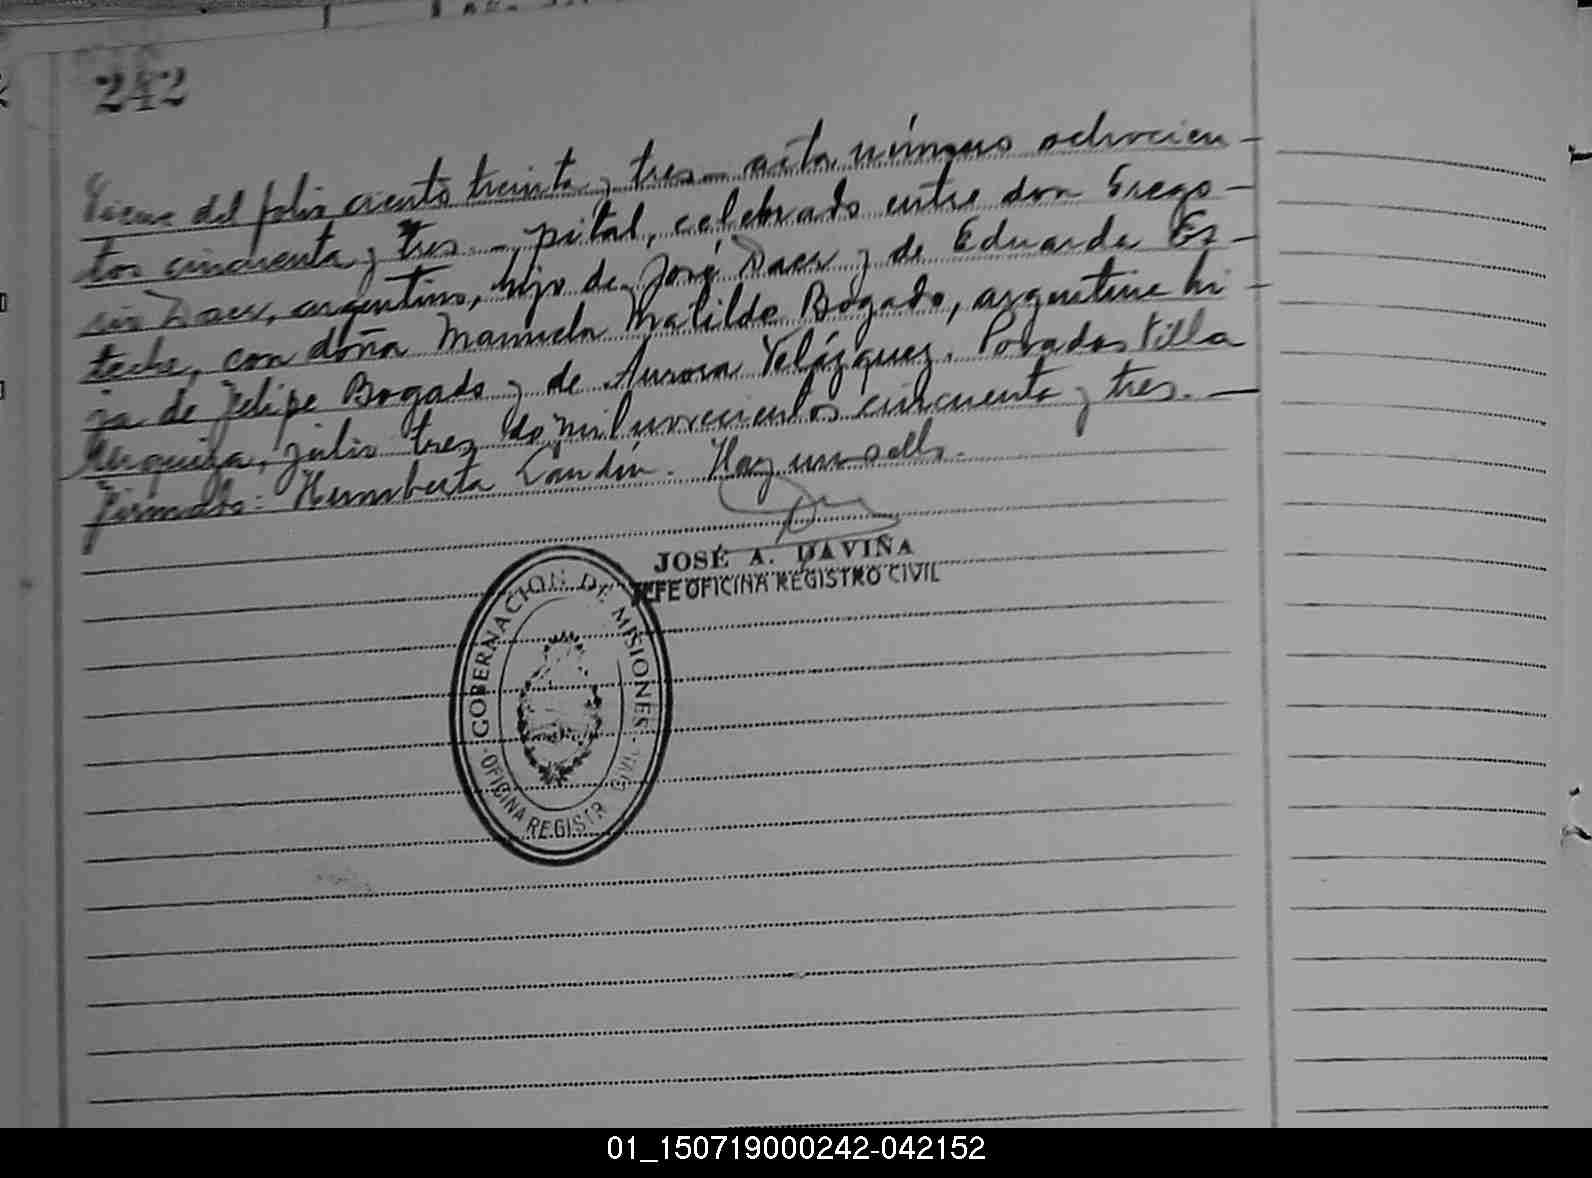 242
Viene del folio ciento treinta y tres — acta número ochocien-
tos cincuenta y tres — pital, celebrado entre don Grego-
rio Daer, argentino, hijo de José Daer y de Eduarda Es-
teche, con doña Manuela Matilde Bogado, argentina hi-
ja de Felipe Bogado y de Aurora Velázquez. Posadas Villa
Urquiza, julio tres de mil novecientos cincuenta y tres. —
Firmado: Humberto Landin. Hay un sello.
JOSÉ A. DAVIÑA
JEFE OFICINA REGISTRO CIVIL
GOBERNACION DE MISIONES
OFICINA REGISTR CIVIL
01_150719000242-042152